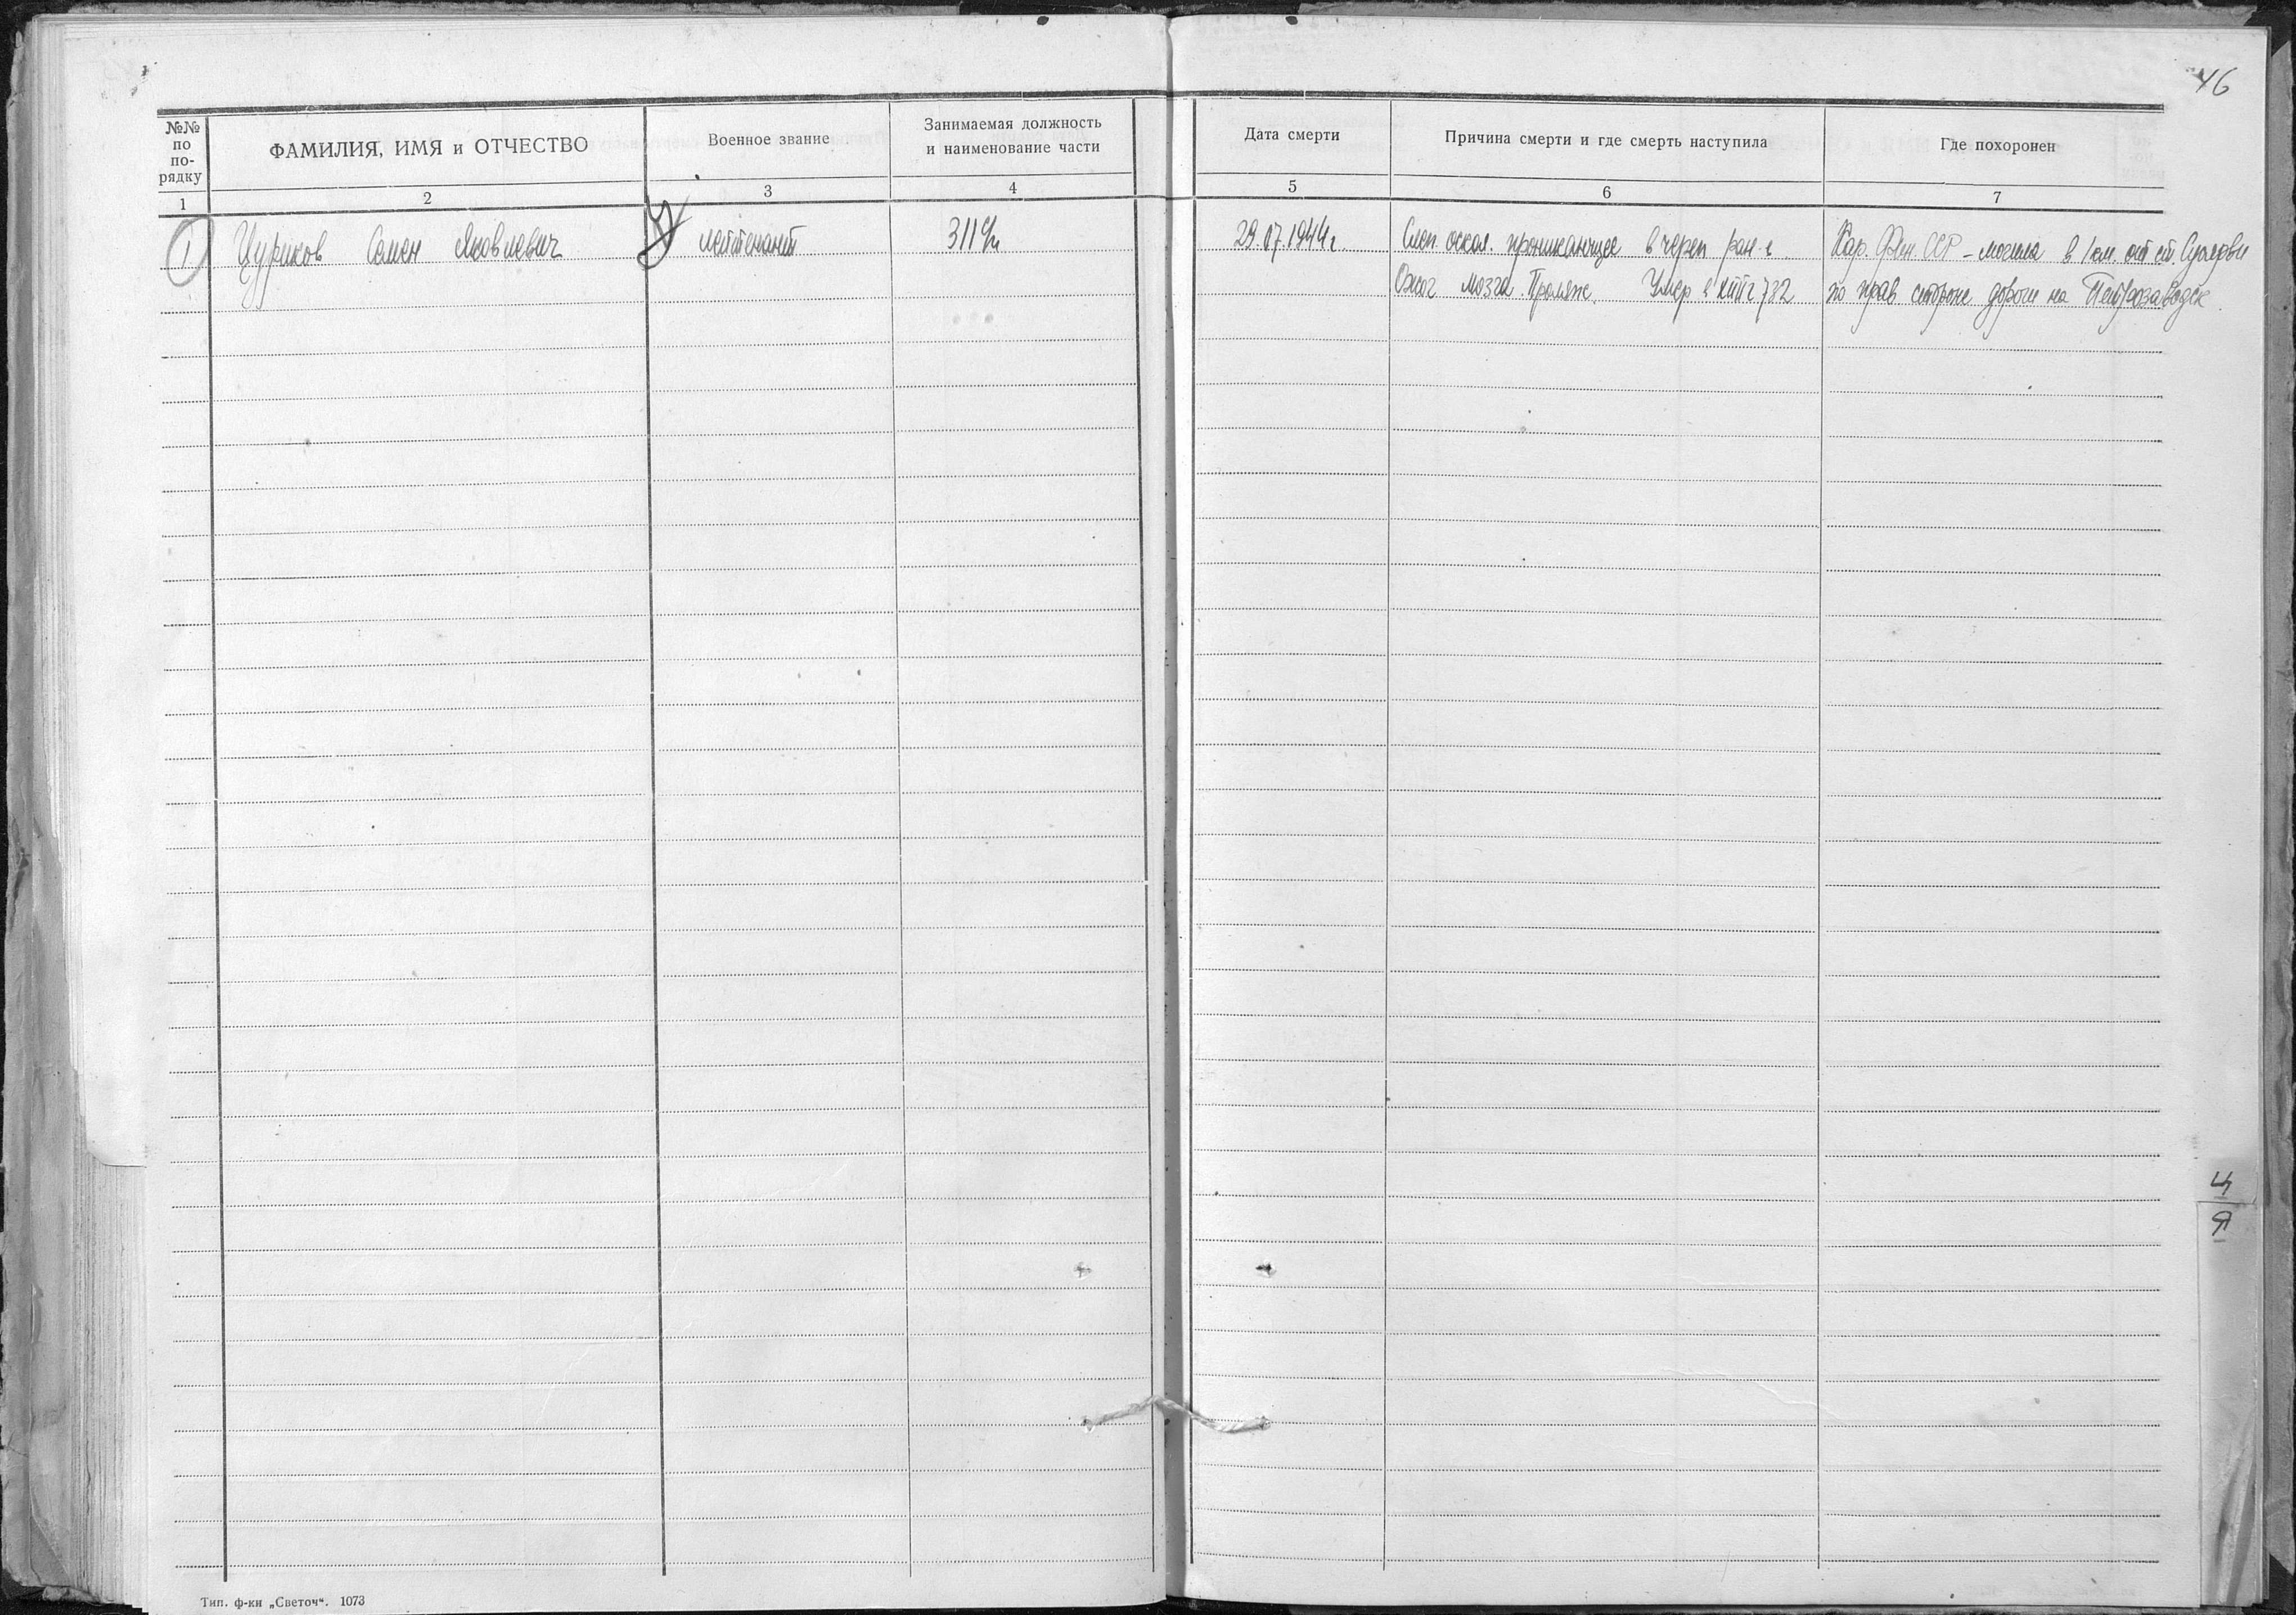 46
№№ по по-рядку
ФАМИЛИЯ, ИМЯ и ОТЧЕСТВО
Военное звание
Занимаемая должность
и наименование части
Дата смерти
Причина смерти и где смерть наступила
Где похоронен
1 2 3 4 5 6 7
1 Цуриков Семен Яковлевич лейтенант 311 29.07.1944 г. Слеп. оскол. проникающее в череп ран-е Кар. Фин. ССР – могила в 1 км. от ст. Суоярви
Ожог мозга. Умер в 782 по прав стороне дороги на Петрозаводск
Ц
Я
Тип. ф-ки „Светоч“. 1073